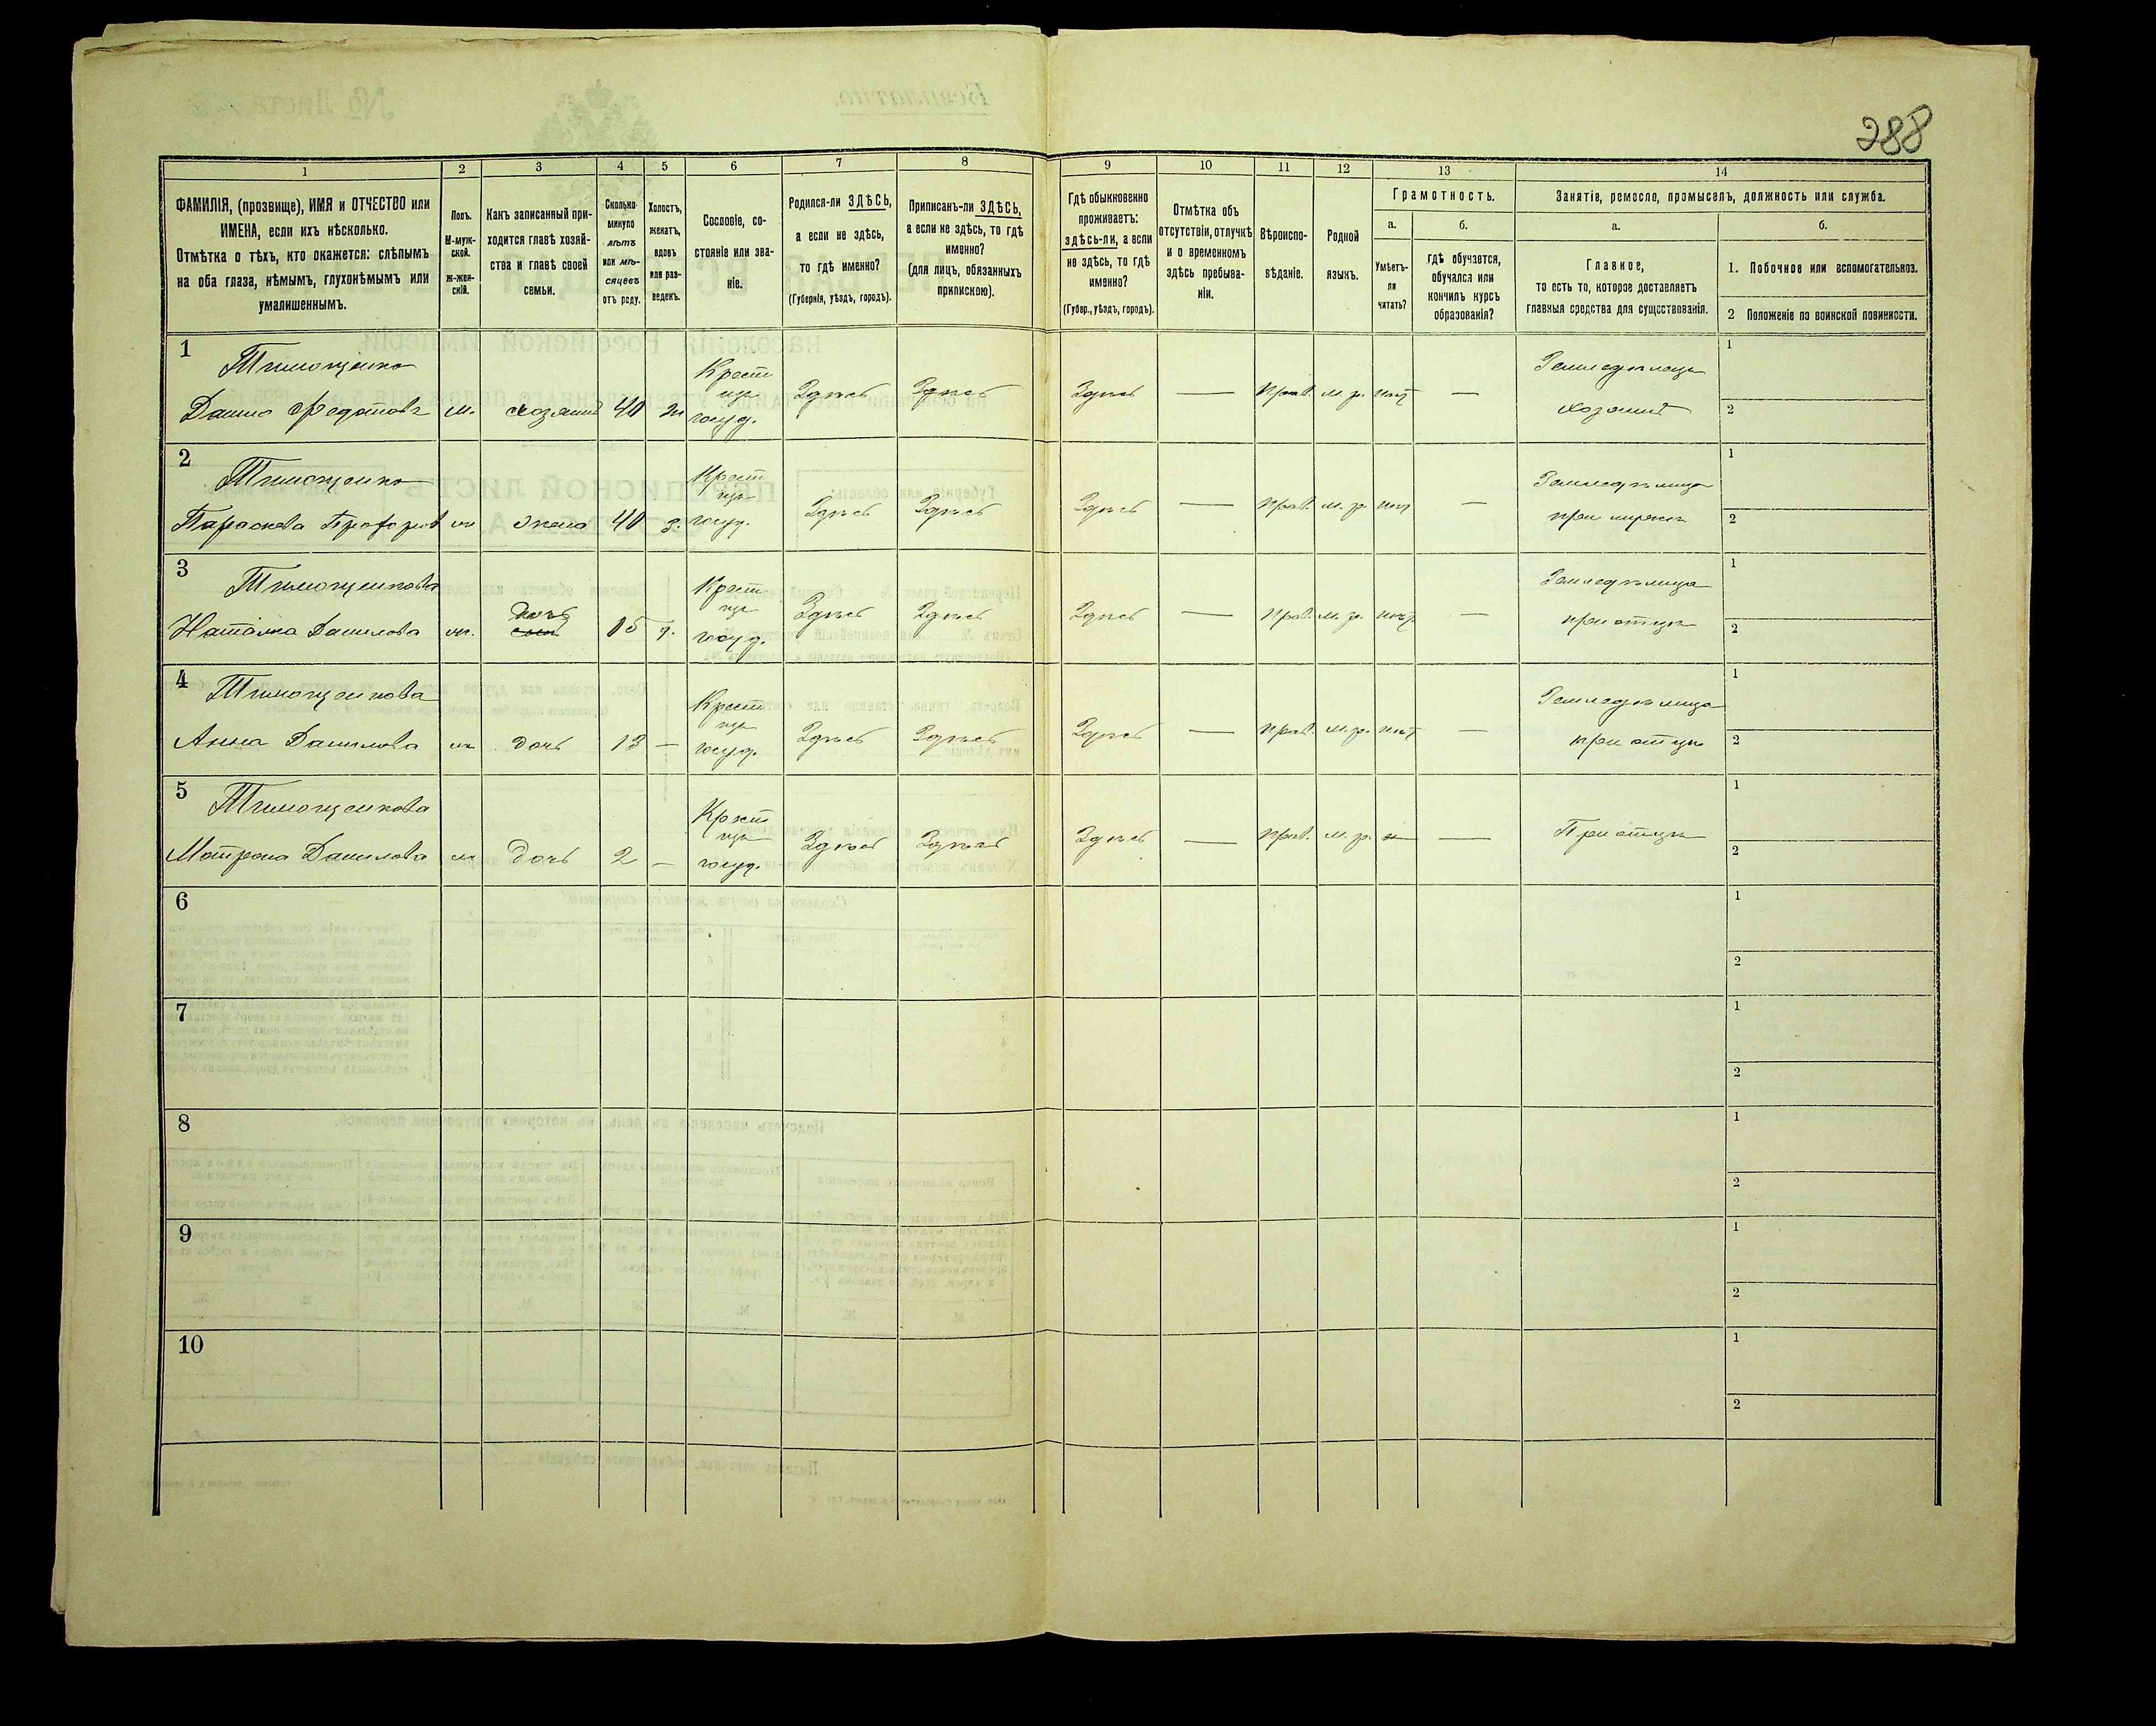 288
1 2 3 4 5 6 7 8 9 10 11 12 13 14
ФАМИЛІЯ, (прозвище), ИМЯ и ОТЧЕСТВО или
ИМЕНА, если ихъ нѣсколько.
Отмѣтка о тѣхъ, кто окажется: слѣпымъ
на оба глаза, нѣмымъ, глухонѣмымъ или
умалишеннымъ.
Полъ.
М-муж-
ской.
Ж-жен-
скій.
Какъ записанный при-
ходится главѣ хозяй-
ства и главѣ своей
семьи.
Сколько
минуло
лѣтъ
или мѣ-
сяцевъ
отъ роду.
Холостъ,
женатъ,
вдовъ
или раз-
веденъ.
Сословіе, со-
стояніе или зва-
ніе.
Родился-ли ЗДѢСЬ,
а если не здѣсь,
то гдѣ именно?
(Губернія, уѣздъ, городъ).
Приписанъ-ли ЗДѢСЬ,
а если не здѣсь, то гдѣ
именно?
(для лицъ, обязанныхъ
припискою).
Гдѣ обыкновенно
проживаетъ:
здѣсь-ли, а если
не здѣсь, то гдѣ
именно?
(Губер., уѣздъ, городъ).
Отмѣтка объ
отсутствіи, отлучкѣ
и о временномъ
здѣсь пребыва-
ніи.
Вѣроиспо-
вѣданіе.
Родной
языкъ.
Грамотность.
а.
Умѣетъ-
ли
читать?
б.
гдѣ обучается,
обучался или
кончилъ курсъ
образованія?
Занятіе, ремесло, промыселъ, должность или служба.
а.
Главное,
то есть то, которое доставляетъ
главныя средства для существованія.
б.
1. Побочное или вспомогательноз.
2 Положеніе по воинской повинности.
1
Тимощенко
Данило Федотовъ
м.
хозяинъ
40
ж
Крест
нзъ
госуд.
Здѣсь
Здѣсь
Здѣсь
—
Прав.
м. р.
нѣт
—
Земледѣлецъ
хозяинъ
1
2
2
Тимощенко
Параскева
ж
жена
40
з.
Крест
госуд.
Здѣсь
Здѣсь
Здѣсь
—
Прав.
м. р.
нѣт
—
Земледѣлица
при мужѣ
1
2
3
Тимощенкова
Наталка Данилова
ж.
Дочь
15
д.
Крест
госуд.
Здѣсь
Здѣсь
Здѣсь
—
Прав.
м. р.
нѣт
—
Земледѣлица
при отцѣ
1
2
4
Тимощенкова
Анна Данилова
ж
дочь
13
—
Крест
госуд.
Здѣсь
Здѣсь
Здѣсь
—
Прав.
м. р.
нѣт
—
Земледѣлица
при отцѣ
1
2
5
Тимощенкова
Матрена Данилова
ж
дочь
2
—
Крест
госуд.
Здѣсь
Здѣсь
Здѣсь
—
Прав.
м. р.
—
При отцѣ
1
2
6
1
2
7
1
2
8
1
2
9
1
2
10
1
2